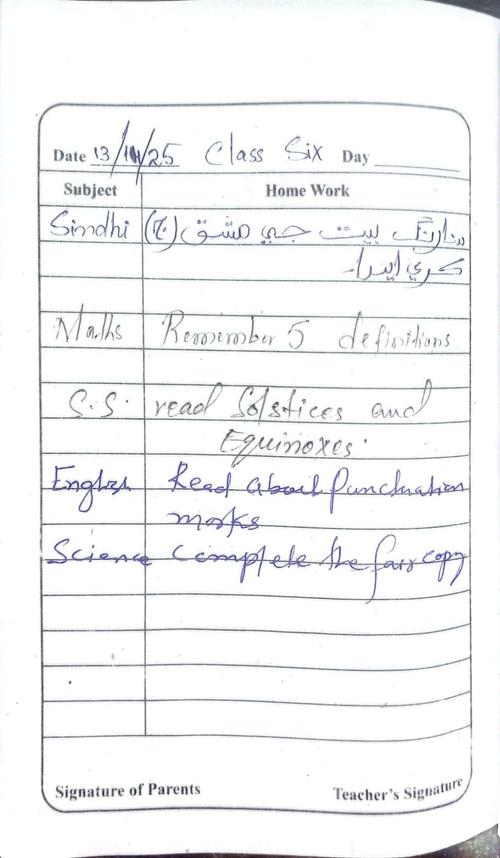 Date 13/11/25 Class Six Day
Subject Home Work
Sindhi سارنگ بيت جي مشق (ج)
ڪري ايندا.
Maths Remember 5 definitions
S.S. read Solstices and
Equinoxes.
English Read about Punctuation
marks
Science Complete the fair copy
Signature of Parents Teacher's Signature